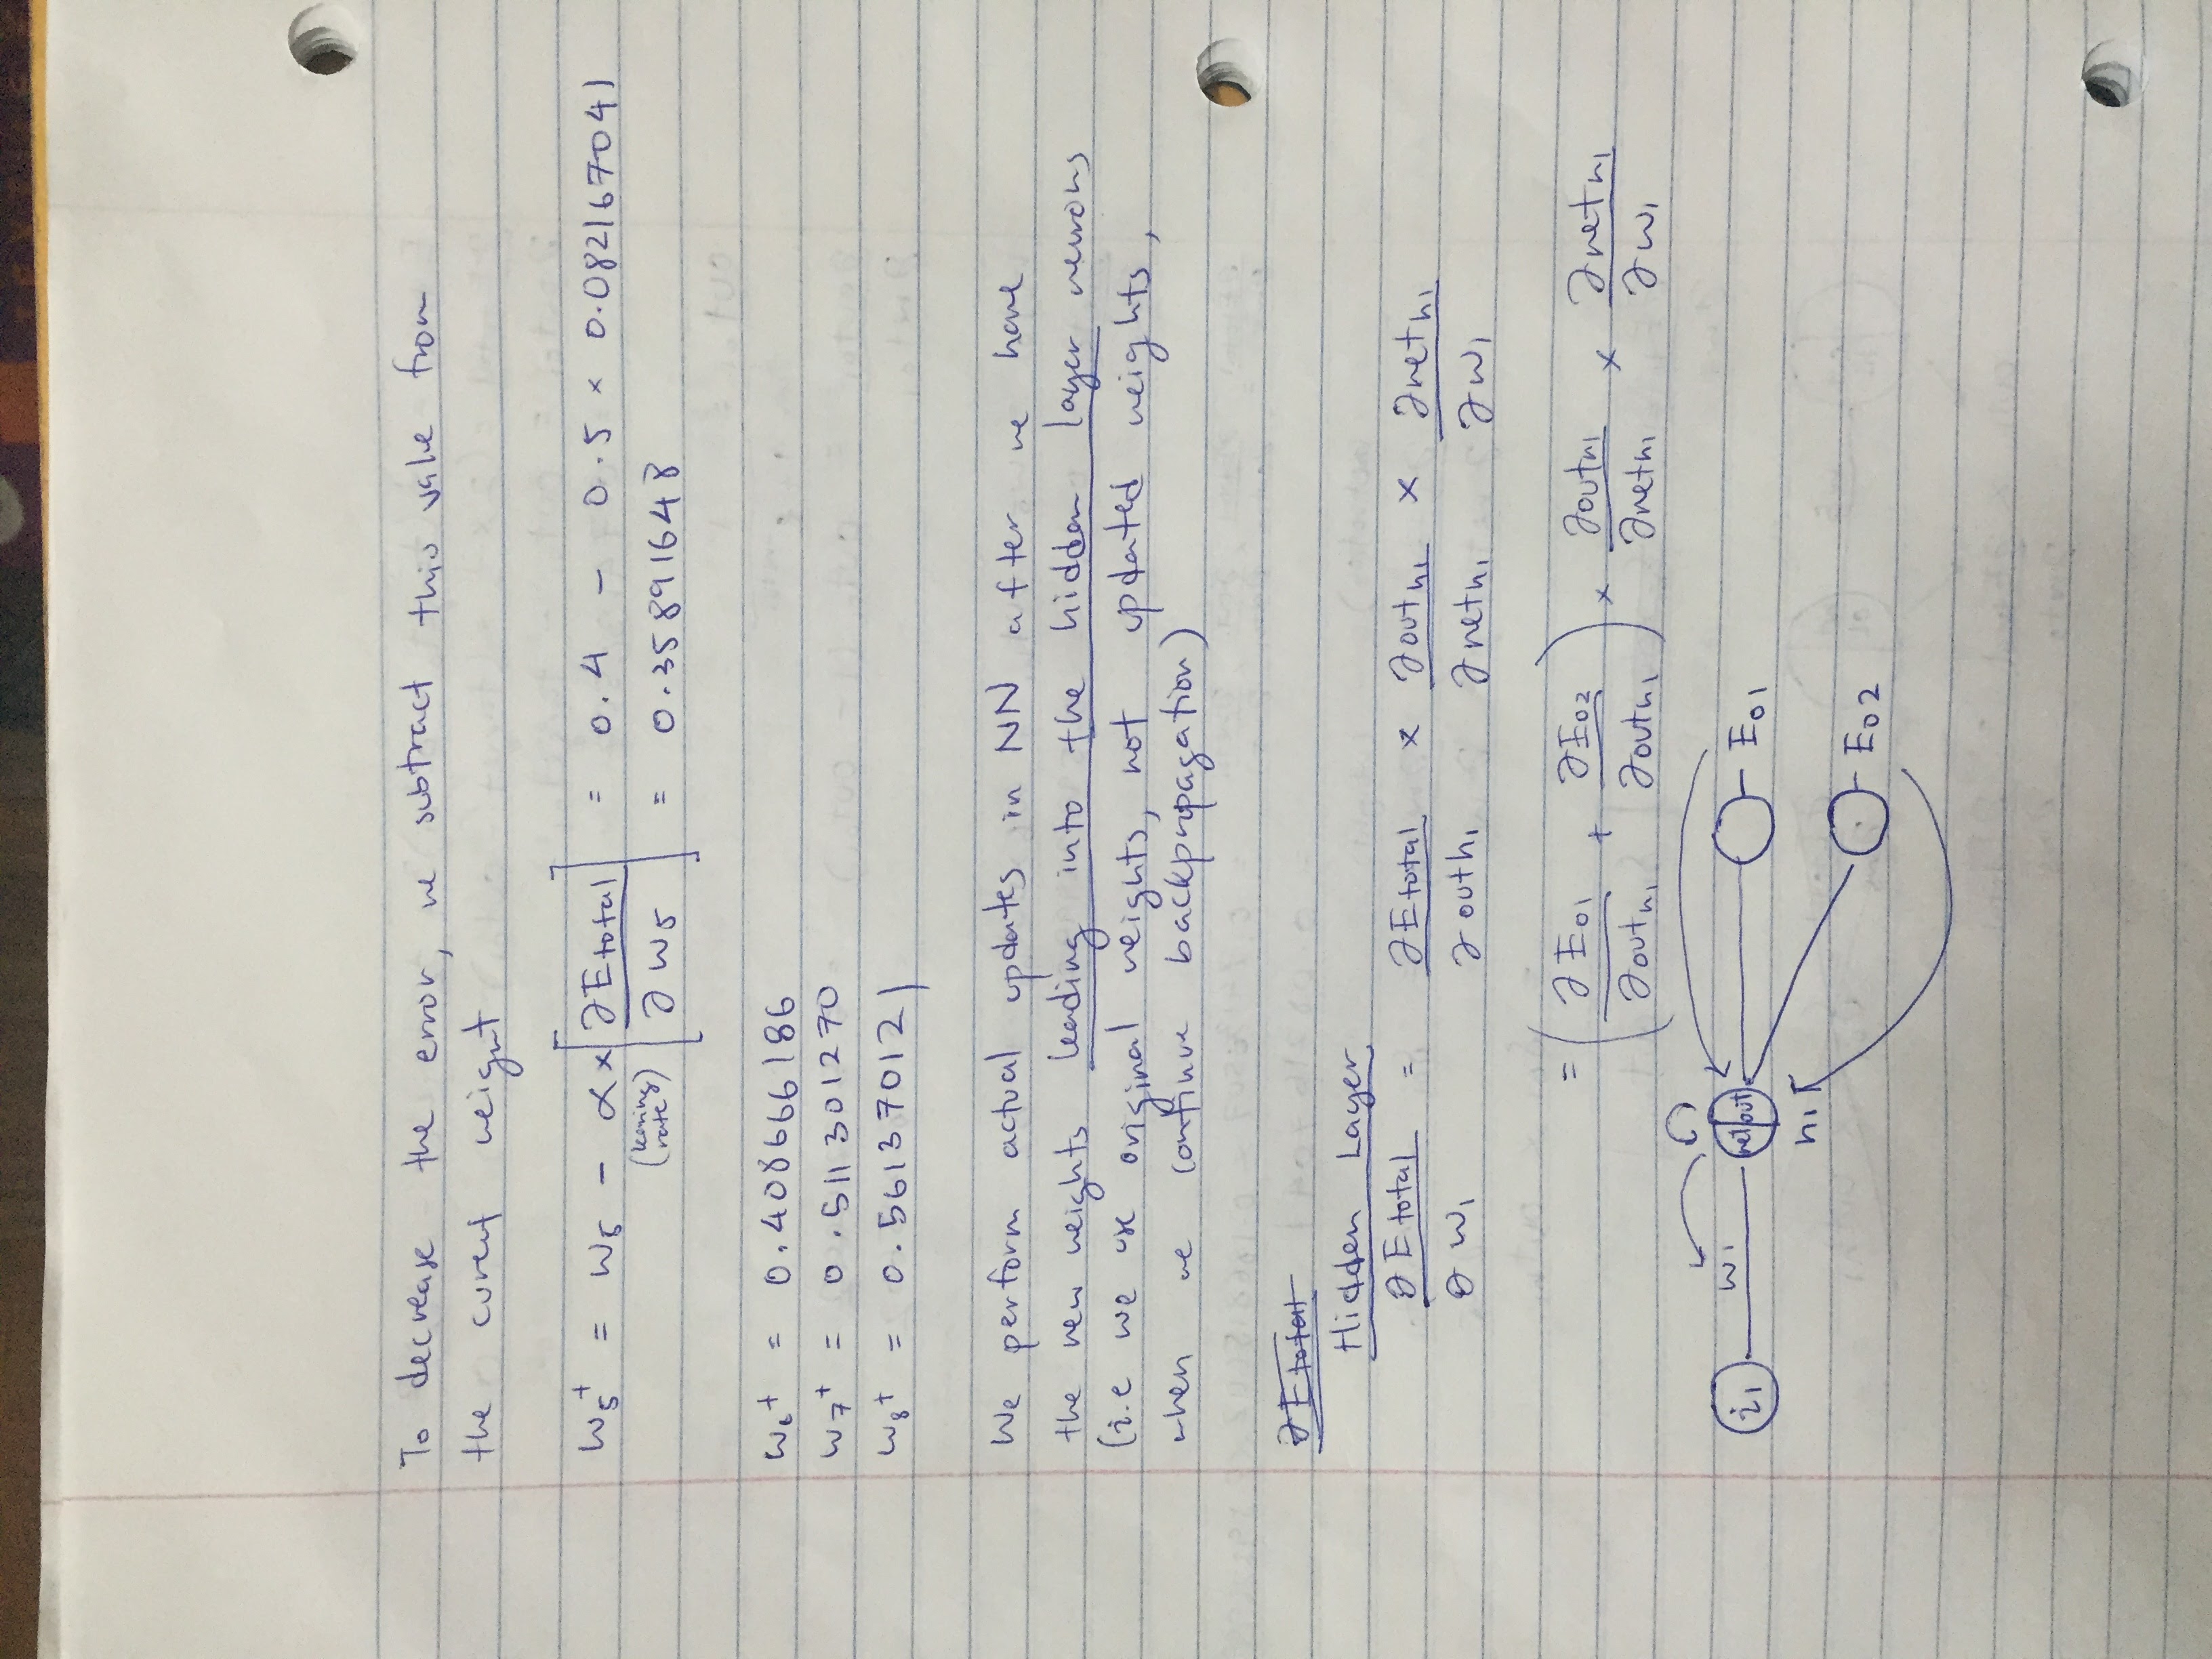 To decrease the error, we subtract this value from
the curent weight
w₅⁺ = w₅ - α × [∂E total / ∂w₅] = 0.4 - 0.5 × 0.082167041
(learning rate) = 0.35891648
w₆⁺ = 0.408666186
w₇⁺ = 0.511301270
w₈⁺ = 0.561370121
We perform actual updates in NN after we have
the new weights leading into the hidden layer neurons
(i.e we use original weights, not updated weights,
when we continue backpropagation)
∂E total
Hidden Layer
∂E total / ∂w₁ = ∂E total / ∂out h₁ × ∂out h₁ / ∂net h₁ × ∂net h₁ / ∂w₁
= (∂E o1 / ∂out h₁ + ∂E o2 / ∂out h₁) × ∂out h₁ / ∂net h₁ × ∂net h₁ / ∂w₁
i₁ w₁ net out E o1
h₁
E o2